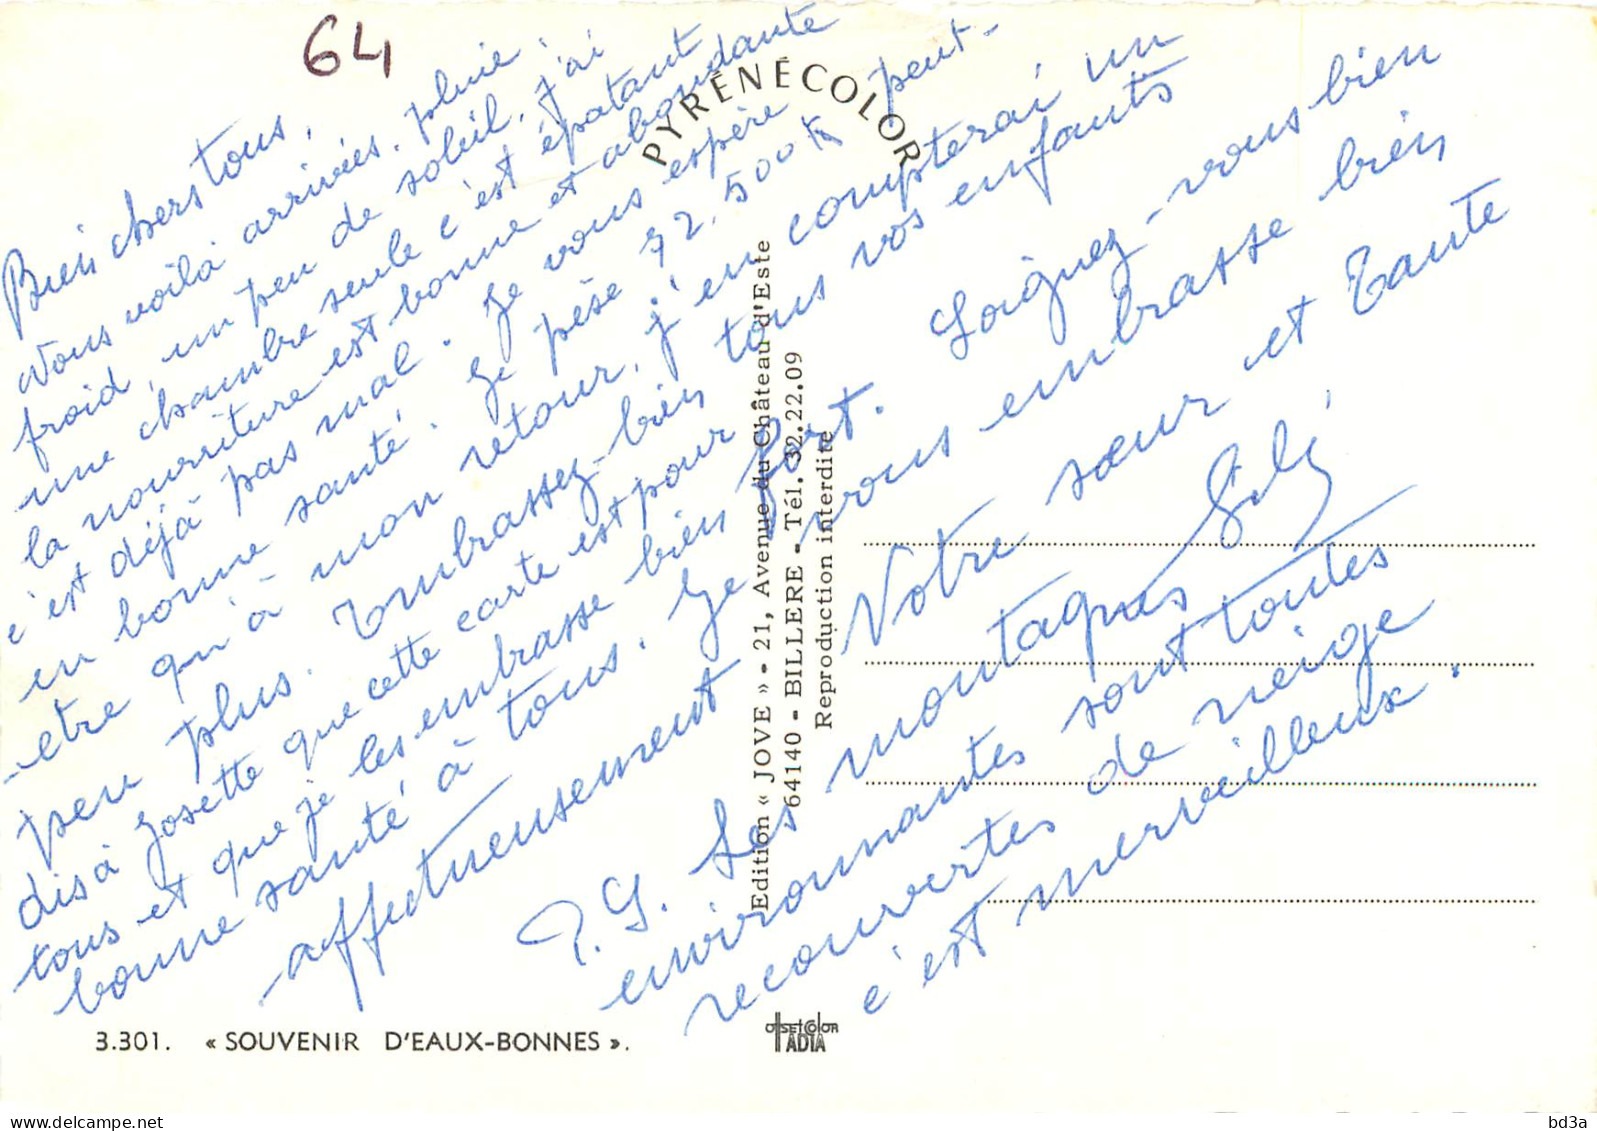 64
Bien chers tous,
Nous voilà arrivées, pluie,
froid, un peu de soleil, j'ai
une chambre seule c'est épatant
la nourriture est bonne et abondante
c'est déjà pas mal. Je vous espère
en bonne santé. Je pèse 72,500 K peut-
-être qu'à mon retour, j'en compterai un
peu plus. Embrassez-bien tous vos enfants
dis à Josette que cette carte est pour
tous et que je les embrasse bien fort. Soignez-vous bien
bonne santé à tous. Je vous embrasse bien
affectueusement Votre sœur et Tante
P.S. Les montagnes
environnantes sont toutes
recouvertes de neige
c'est merveilleux.
PYRÉNÉCOLOR
Edition « JOVE » - 21, Avenue du Château d'Este
64140 - BILLERE - Tél. 32.22.09
Reproduction interdite
3.301. « SOUVENIR D'EAUX-BONNES ».
OffSETCOlOR
ADIA
delcampe.net
bd3a